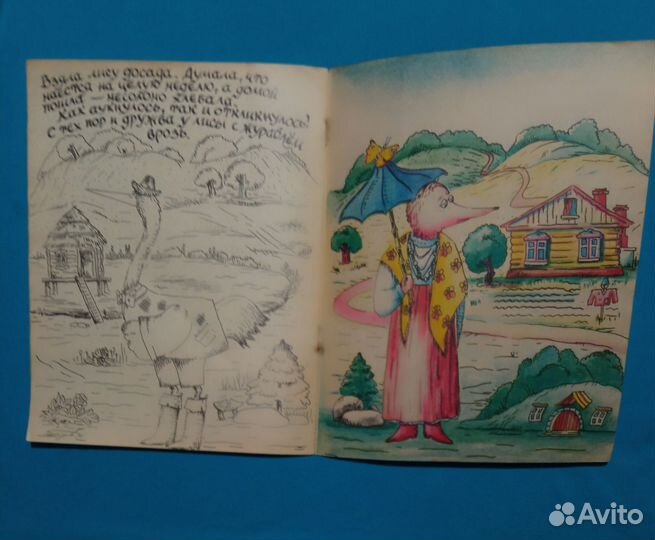 Взяла лису досада. Думала, что
наестся на целую неделю, а домой
пошла — несолоно хлебала.
Как аукнулось, так и откликнулось!
С тех пор и дружба у лисы с журавлём
врозь.
Avito